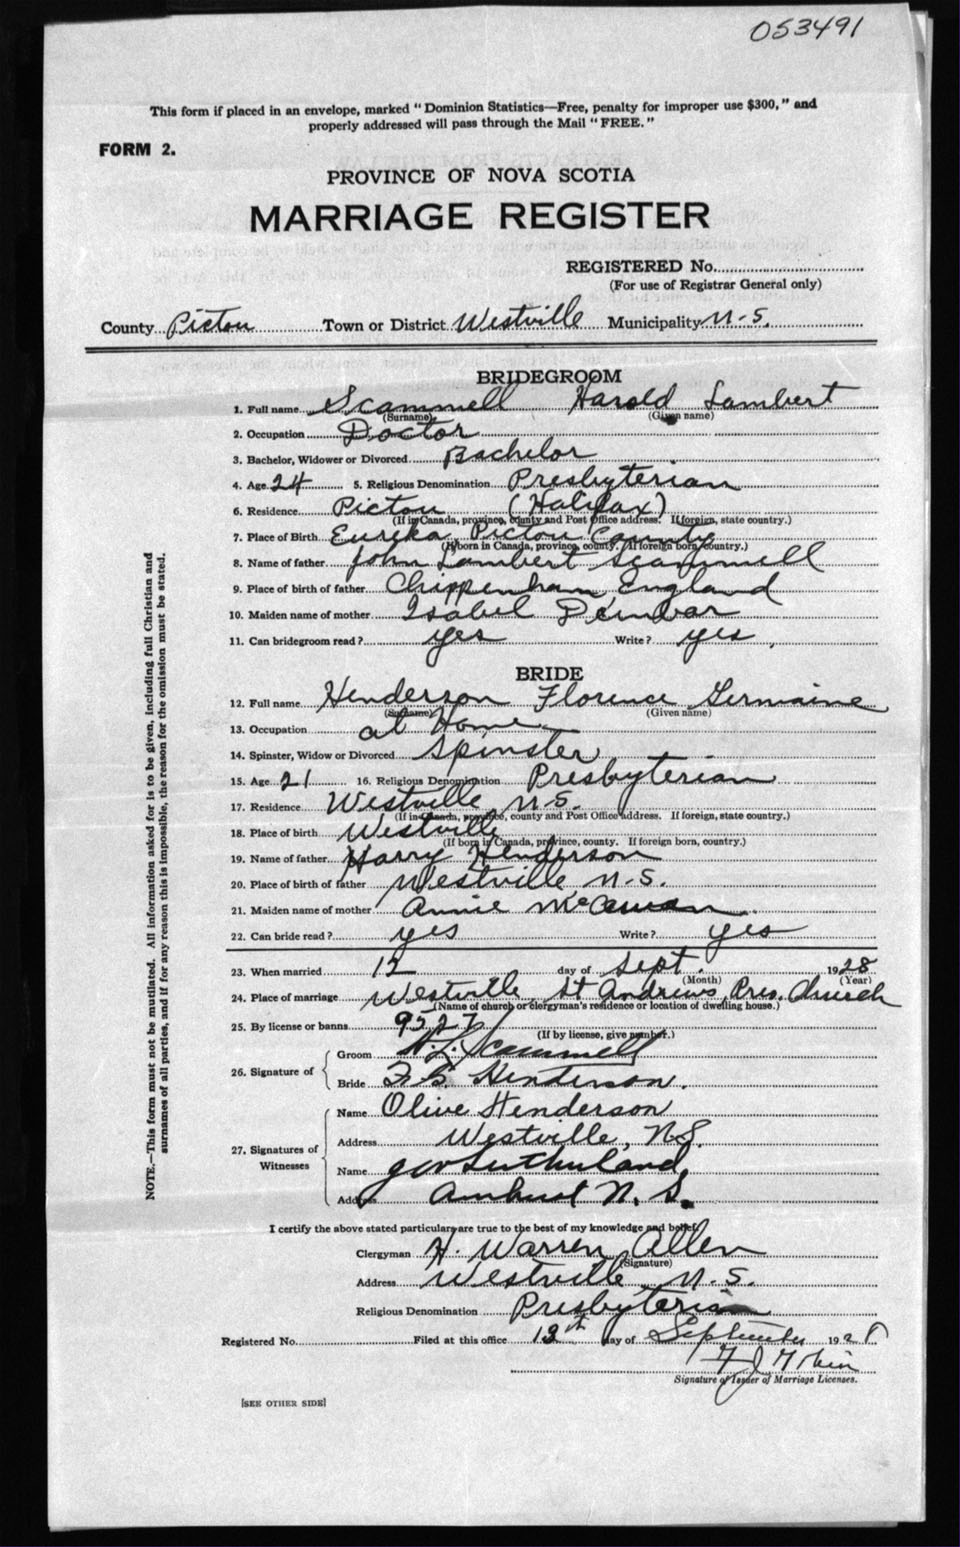 053491
This form if placed in an envelope, marked "Dominion Statistics—Free, penalty for improper use $300," and
properly addressed will pass through the Mail "FREE."
FORM 2.
PROVINCE OF NOVA SCOTIA
MARRIAGE REGISTER
REGISTERED No.
(For use of Registrar General only)
County Pictou Town or District Westville Municipality N-S.
BRIDEGROOM
1. Full name Scammell Harold Lambert
(Surname) (Given name)
2. Occupation Doctor
3. Bachelor, Widower or Divorced Bachelor
4. Age 24 5. Religious Denomination Presbyterian
6. Residence Pictou (Halifax)
(If in Canada, province, county and Post Office address. If foreign, state country.)
7. Place of Birth Eureka, Pictou County
(If born in Canada, province, county. If foreign born, country.)
8. Name of father John Lambert Scammell
9. Place of birth of father Chippenham England
10. Maiden name of mother Isabel Dunbar
11. Can bridegroom read? yes Write? yes
BRIDE
12. Full name Henderson Florence Germaine
(Surname) (Given name)
13. Occupation at Home
14. Spinster, Widow or Divorced Spinster
15. Age 21 16. Religious Denomination Presbyterian
17. Residence Westville N-S.
(If in Canada, province, county and Post Office address. If foreign, state country.)
18. Place of birth Westville
(If born in Canada, province, county. If foreign born, country.)
19. Name of father Harry Henderson
20. Place of birth of father Westville N-S.
21. Maiden name of mother Annie
22. Can bride read? yes Write? yes
23. When married 12 day of Sept. 1928
(Month) (Year)
24. Place of marriage Westville St Andrews Pres. Church
(Name of church or clergyman's residence or location of dwelling house.)
25. By license or banns 9527
(If by license, give number.)
26. Signature of
Groom H. L. Scammell
Bride F. G. Henderson.
27. Signatures of Witnesses
Name Olive Henderson
Address Westville, N.S.
Name Sutherland
Address Amherst N. S.
I certify the above stated particulars are true to the best of my knowledge and belief.
Clergyman H. Warren Allen
(Signature)
Address Westville N.S.
Religious Denomination Presbyterian
Registered No. Filed at this office day of September 1928
Signature of Issuer of Marriage Licenses.
[SEE OTHER SIDE]
NOTE.—This form must not be mutilated. All information asked for is to be given, including full Christian and
surnames of all parties, and if for any reason this is impossible, the reason for the omission must be stated.